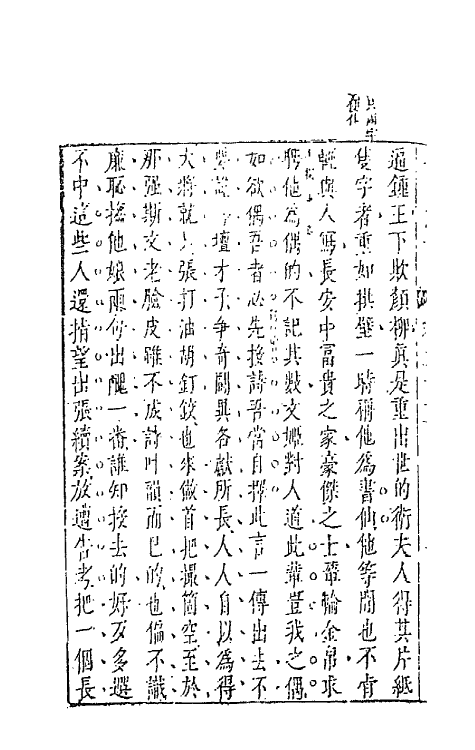 逼鍾王下欺顏柳真是重出世的衛夫人得其片紙
隻字者重如拱璧一時稱他為書仙他等閒也不肯
輕與人寫長安中富貴之家豪傑之士輦輸金帛求
聘他為偶的不記其數文姬對人道此輩豈我之偶
如欲偶吾者必先投詩吾當自擇此言一傳出去不
壇才子爭奇鬪異各獻所長人人自以為得
大將就是張打油胡釘鉸也來做首把撮箇空至於
那強斯文老臉皮雖不成詩叶韻而已的也偏不識
廉恥捨他娘兩句出醜一番誰知投去的好歹多選
不中這些人還指望出張續案放遭告考把一個長